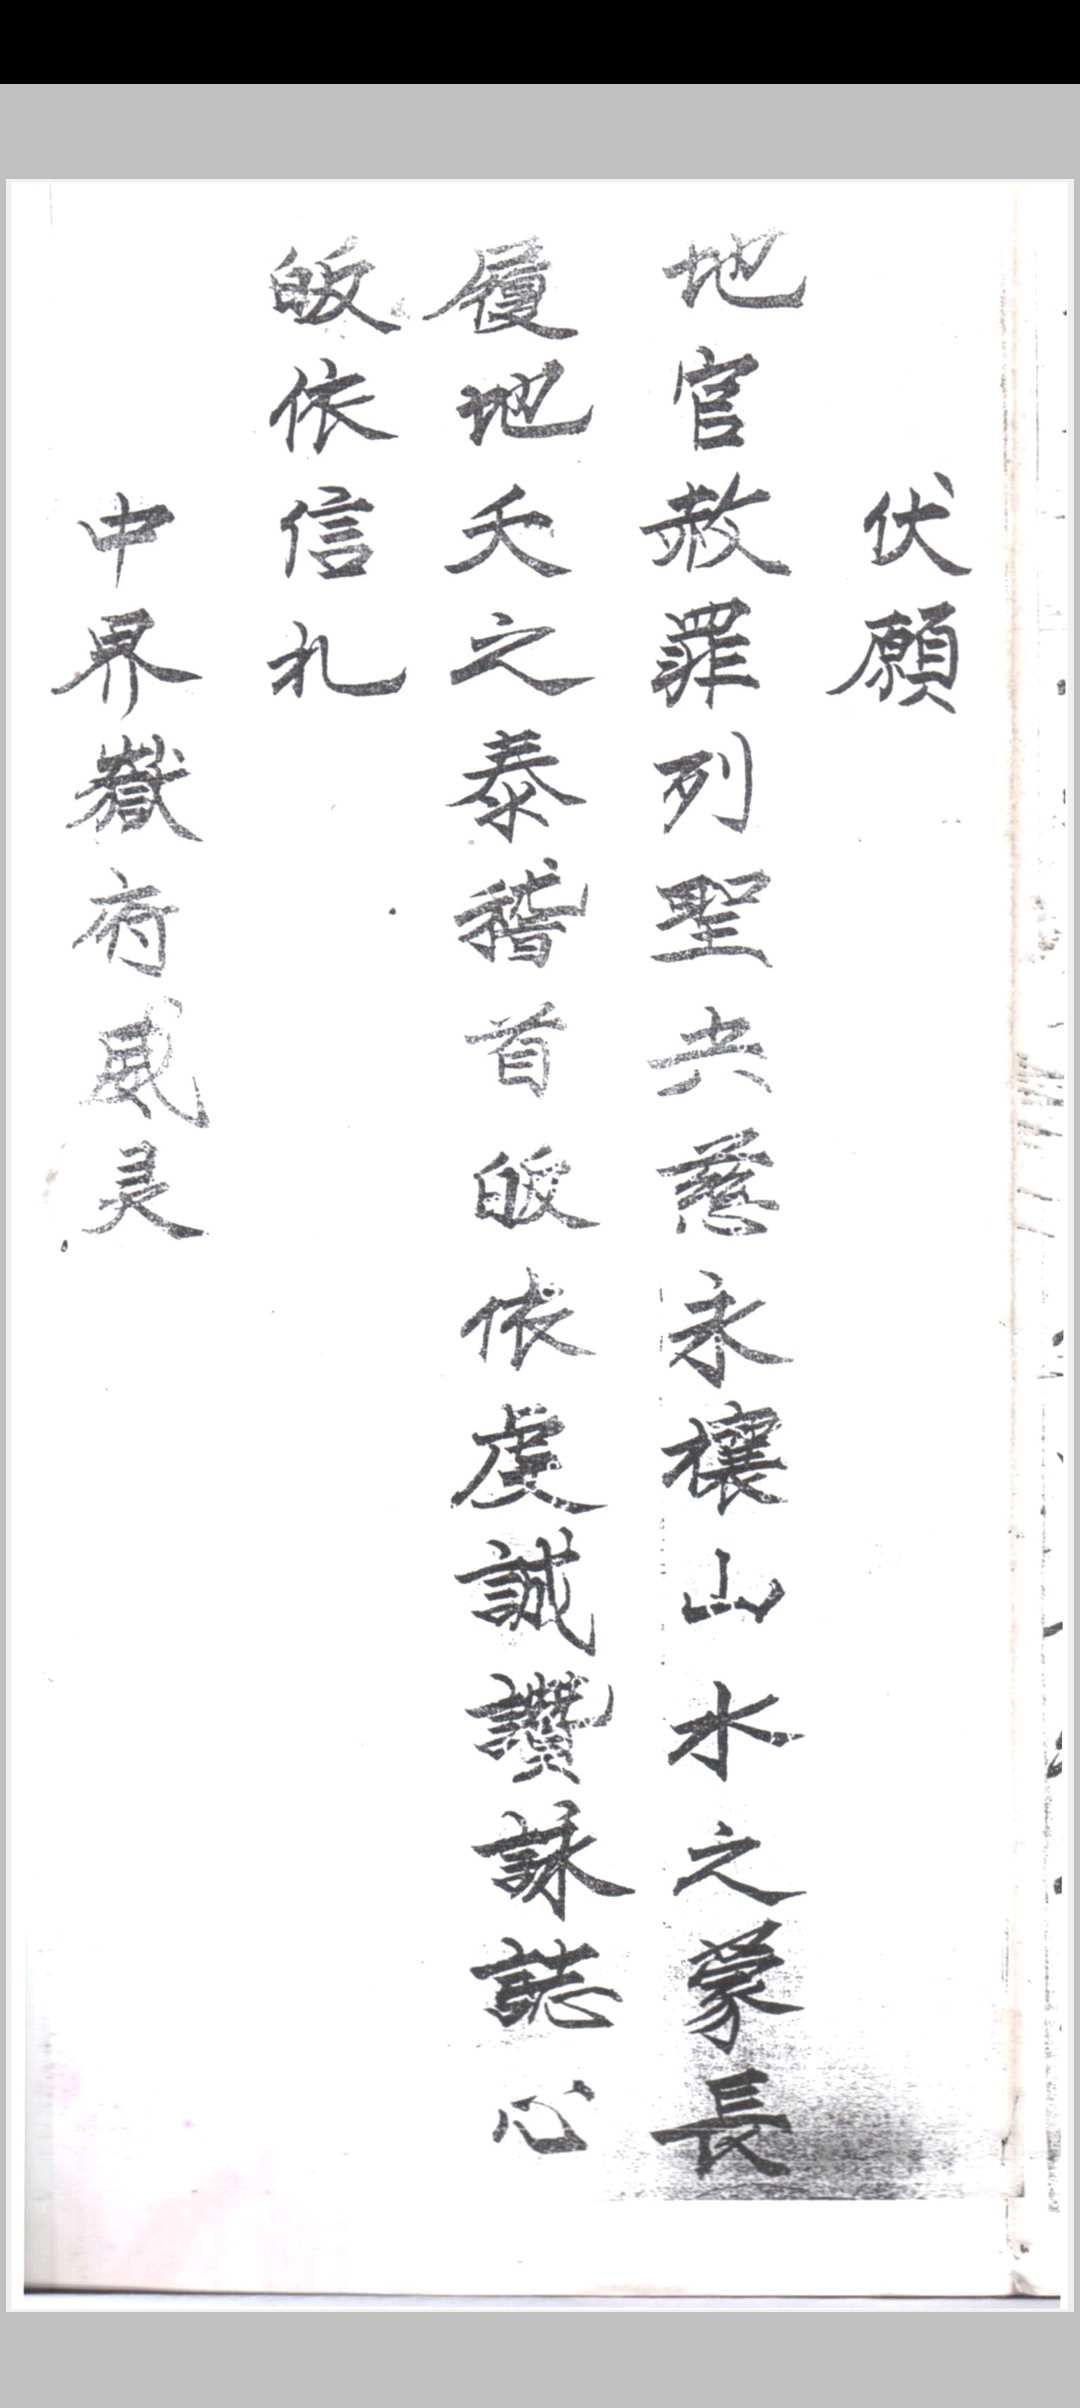 伏願
地官赦罪列聖共慈永禳山水之蒙長
履地天之泰稽首皈依虔誠讚詠誌心
皈依信礼
中界嶽府威灵